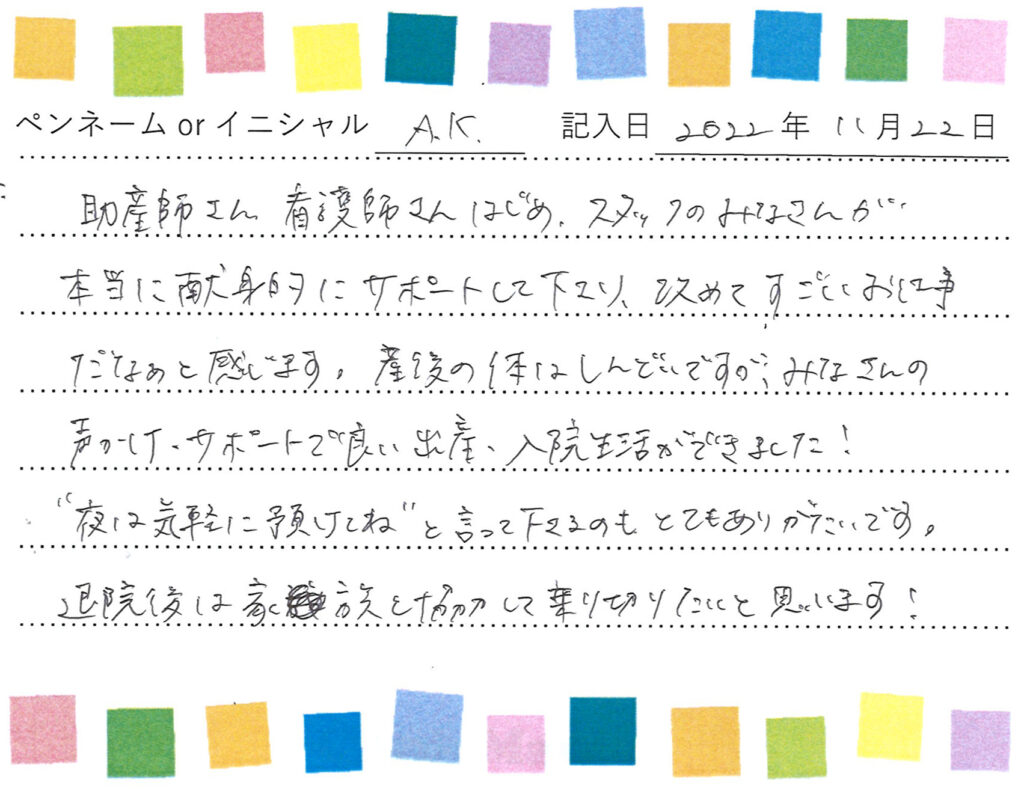 ペンネーム or イニシャル A.K. 記入日 2022年 11月22日
助産師さん、看護師さんはじめ、スタッフのみなさんが
本当に献身的にサポートして下さり、改めてすごいお仕事
だなぁと感じます。産後の体はしんどいですが、みなさんの
声かけ・サポートで良い出産、入院生活ができました!
"夜は気軽に預けてね"と言って下さるのもとてもありがたいです。
退院後は家族と協力して乗り切りたいと思います!